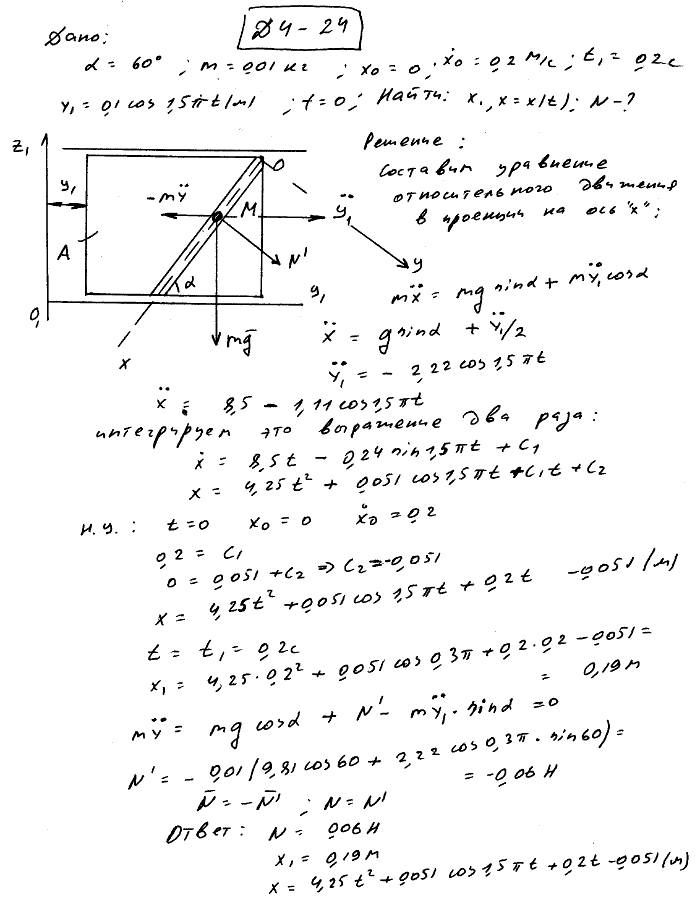 Д4-24
Дано:
α = 60° ; m = 0,01 кг ; x₀ = 0 ; ẋ₀ = 0,2 м/с ; t₁ = 0,2 с
y₁ = 0,1 cos 1,5πt (м) ; f = 0 ; Найти: x₁, x = x(t) ; N - ?
Решение :
Составим уравнение
относительного движения
в проекции на ось "x" :
z₁
y₁
A
-mÿ
M
O
ÿ₁
N'
y
α
y₁
O₁
x
mg̅
mẍ = mg sinα + mÿ₁ cosα
ẍ = g sinα + ÿ₁/2
ÿ₁ = - 2,22 cos 1,5πt
ẍ = 8,5 - 1,11 cos 1,5πt
интегрируем это выражение два раза :
ẋ = 8,5t - 0,24 sin 1,5πt + C₁
x = 4,25t² + 0,051 cos 1,5πt + C₁t + C₂
н.у. : t = 0 x₀ = 0 ẋ₀ = 0,2
0,2 = C₁
0 = 0,051 + C₂ ⇒ C₂ = -0,051
x = 4,25t² + 0,051 cos 1,5πt + 0,2t - 0,051 (м)
t = t₁ = 0,2 с
x₁ = 4,25·0,2² + 0,051 cos 0,3π + 0,2·0,2 - 0,051 =
= 0,19 м
mÿ = mg cosα + N' - mÿ₁·sinα = 0
N' = - 0,01 (9,81 cos 60 + 2,22 cos 0,3π · sin 60) =
= -0,06 Н
N̅ = -N̅' ; N = N'
Ответ : N = 0,06 Н
x₁ = 0,19 м
x = 4,25t² + 0,051 cos 1,5πt + 0,2t - 0,051 (м)